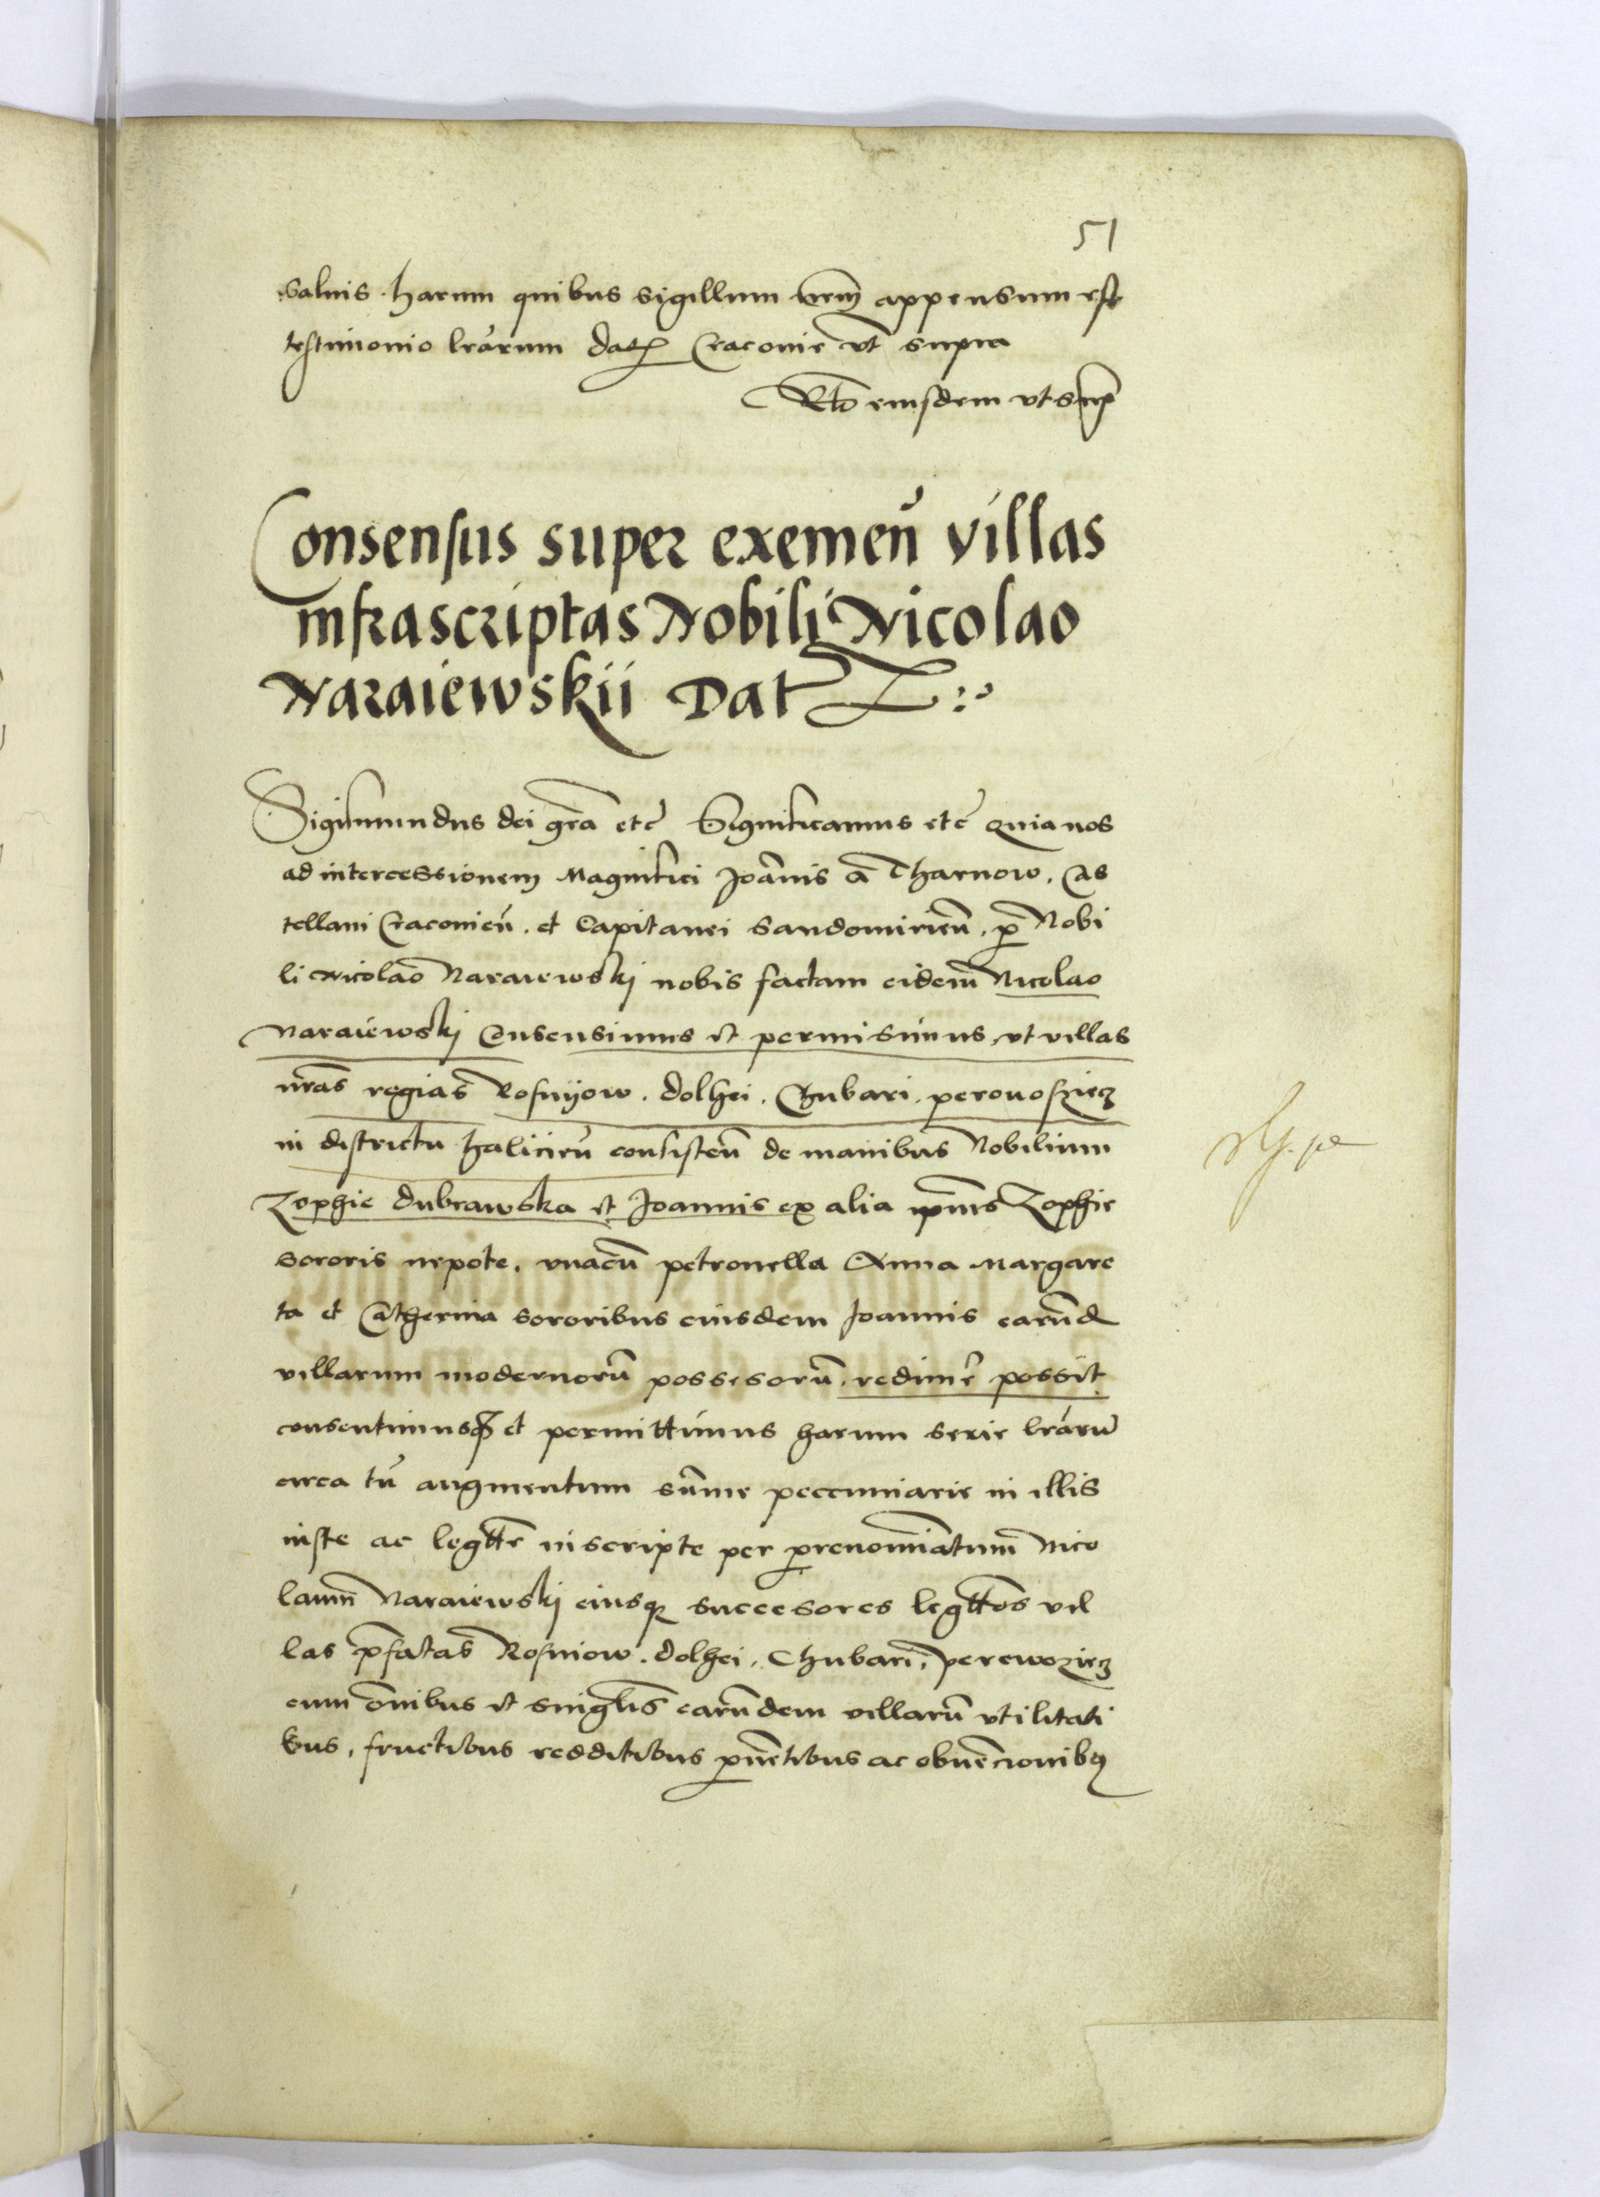 51
salvis. harum quibus sigillum nrm̄ appensum est
testimonio lrarum dat Cracovie vt supra
Rtō eiusdem vt sup
Consensus super exemeñ villas
infrascriptas Nobili Nicolao
Naraiewskii Dat
Sigismundus dei grā etc̄ Significamus etc̄ Quia nos
ad intercessionem Magnifici Joānis a Tharnow. Cas
tellani Cracovieñ. et Capitanei Sandomirieñ. p̄ Nobi
li Nicolao Naraiewskj nobis factam eidem Nicolao
Naraiewskj Consensimus et permisimus, vt villas
nrās regias Rosnyow. dolhei. Chubari. perovosziecz
in districtu halicieñ consisteñ de manibus Nobilium
Zophie dubrawska et Joannis ex alia ipsius Zophie
sororis nepote, vnacū petronella Anna Margare
ta et Catherina sororibus eiusdem Joannis earūd
villarum modernorū possesorū. redimer̄ possit
consentimusq et permittimus harum serie lrarū
circa tn̄ augmentum sum̄e peccuniarie in illis
iuste ac legttē inscripte per prenominatum Nico
laum Naraiewskj eiusq succesores legttōs vil
las p̄fatas Rosniow. dolhei. Chubari, perewoziecz
cum om̄ibus et singulis earūdem villarū vtilitati
bus, fructibus redditibus prouentibus ac obuēcionibq